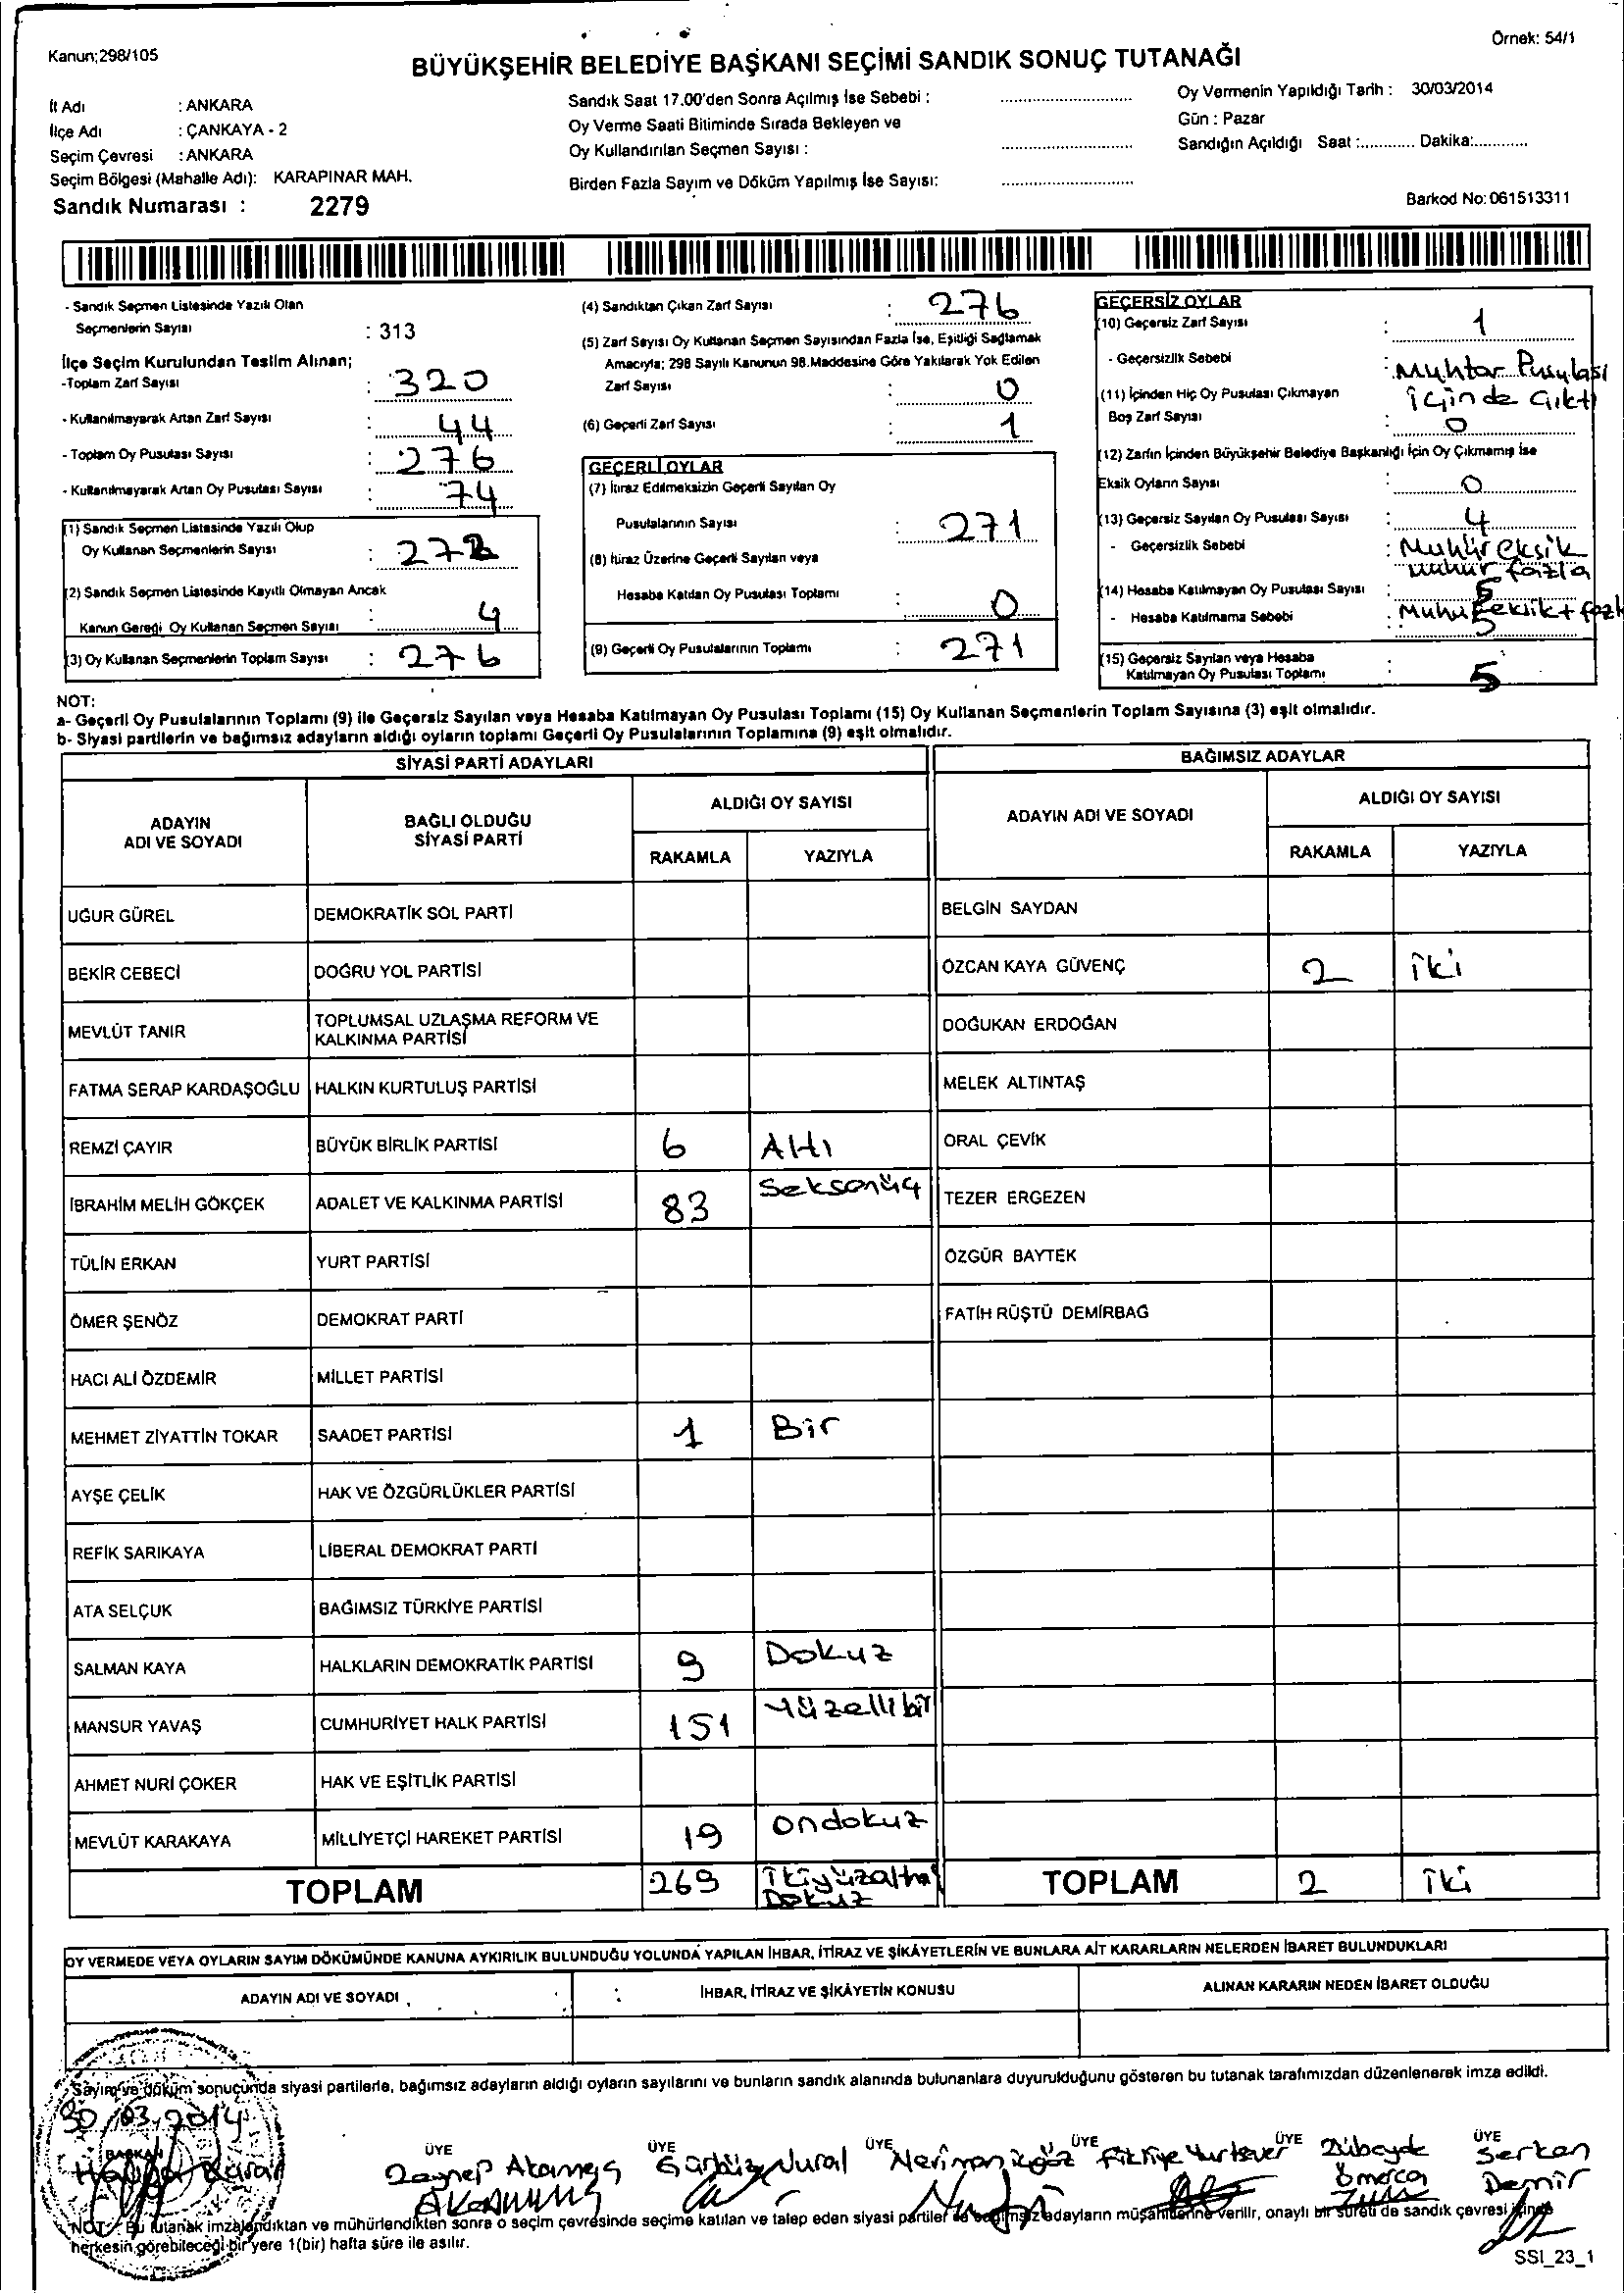 Kanun;298/105
Örnek: 54/1
BÜYÜKŞEHİR BELEDİYE BAŞKANI SEÇİMİ SANDIK SONUÇ TUTANAĞI
İl Adı : ANKARA
İlçe Adı : ÇANKAYA - 2
Seçim Çevresi : ANKARA
Seçim Bölgesi (Mahalle Adı): KARAPINAR MAH.
Sandık Numarası : 2279
Sandık Saat 17.00'den Sonra Açılmış İse Sebebi :
Oy Verme Saati Bitiminde Sırada Bekleyen ve
Oy Kullandırılan Seçmen Sayısı :
Birden Fazla Sayım ve Döküm Yapılmış İse Sayısı:
Oy Vermenin Yapıldığı Tarih : 30/03/2014
Gün : Pazar
Sandığın Açıldığı Saat :............ Dakika:............
Barkod No: 061513311
- Sandık Seçmen Listesinde Yazılı Olan
Seçmenlerin Sayısı : 313
İlçe Seçim Kurulundan Teslim Alınan;
-Toplam Zarf Sayısı : 320
- Kullanılmayarak Artan Zarf Sayısı : 44
- Toplam Oy Pusulası Sayısı : 276
- Kullanılmayarak Artan Oy Pusulası Sayısı : 74
(1) Sandık Seçmen Listesinde Yazılı Olup
Oy Kullanan Seçmenlerin Sayısı : 272
(2) Sandık Seçmen Listesinde Kayıtlı Olmayan Ancak
Kanun Gereği Oy Kullanan Seçmen Sayısı : 4
(3) Oy Kullanan Seçmenlerin Toplam Sayısı : 276
(4) Sandıktan Çıkan Zarf Sayısı : 276
(5) Zarf Sayısı Oy Kullanan Seçmen Sayısından Fazla İse, Eşitliği Sağlamak
Amacıyla; 298 Sayılı Kanunun 98.Maddesine Göre Yakılarak Yok Edilen
Zarf Sayısı : 0
(6) Geçerli Zarf Sayısı : 1
GEÇERLİ OYLAR
(7) İtiraz Edilmeksizin Geçerli Sayılan Oy
Pusulalarının Sayısı : 271
(8) İtiraz Üzerine Geçerli Sayılan veya
Hesaba Katılan Oy Pusulası Toplamı : 0
(9) Geçerli Oy Pusulalarının Toplamı : 271
GEÇERSİZ OYLAR
(10) Geçersiz Zarf Sayısı : 1
- Geçersizlik Sebebi : Muhtar Pusulası
içinde çıktı
(11) İçinden Hiç Oy Pusulası Çıkmayan
Boş Zarf Sayısı : 0
(12) Zarfın İçinden Büyükşehir Belediye Başkanlığı İçin Oy Çıkmamış İse
Eksik Oyların Sayısı : 0
(13) Geçersiz Sayılan Oy Pusulası Sayısı : 4
- Geçersizlik Sebebi : Mühür eksik
mühür fazla
(14) Hesaba Katılmayan Oy Pusulası Sayısı : 5
- Hesaba Katılmama Sebebi :
(15) Geçersiz Sayılan veya Hesaba
Katılmayan Oy Pusulası Toplamı : 5
NOT:
a- Geçerli Oy Pusulalarının Toplamı (9) ile Geçersiz Sayılan veya Hesaba Katılmayan Oy Pusulası Toplamı (15) Oy Kullanan Seçmenlerin Toplam Sayısına (3) eşit olmalıdır.
b- Siyasi partilerin ve bağımsız adayların aldığı oyların toplamı Geçerli Oy Pusulalarının Toplamına (9) eşit olmalıdır.
SİYASİ PARTİ ADAYLARI
BAĞIMSIZ ADAYLAR
ADAYIN
ADI VE SOYADI
BAĞLI OLDUĞU
SİYASİ PARTİ
ALDIĞI OY SAYISI
RAKAMLA YAZIYLA
ADAYIN ADI VE SOYADI
ALDIĞI OY SAYISI
RAKAMLA YAZIYLA
UĞUR GÜREL DEMOKRATİK SOL PARTİ BELGİN SAYDAN
BEKİR CEBECİ DOĞRU YOL PARTİSİ ÖZCAN KAYA GÜVENÇ 2 iki
MEVLÜT TANIR TOPLUMSAL UZLAŞMA REFORM VE
KALKINMA PARTİSİ DOĞUKAN ERDOĞAN
FATMA SERAP KARDAŞOĞLU HALKIN KURTULUŞ PARTİSİ MELEK ALTINTAŞ
REMZİ ÇAYIR BÜYÜK BİRLİK PARTİSİ 6 Altı ORAL ÇEVİK
İBRAHİM MELİH GÖKÇEK ADALET VE KALKINMA PARTİSİ 83 Seksenüç TEZER ERGEZEN
TÜLİN ERKAN YURT PARTİSİ ÖZGÜR BAYTEK
ÖMER ŞENÖZ DEMOKRAT PARTİ FATİH RÜŞTÜ DEMİRBAĞ
HACI ALİ ÖZDEMİR MİLLET PARTİSİ
MEHMET ZİYATTİN TOKAR SAADET PARTİSİ 1 Bir
AYŞE ÇELİK HAK VE ÖZGÜRLÜKLER PARTİSİ
REFİK SARIKAYA LİBERAL DEMOKRAT PARTİ
ATA SELÇUK BAĞIMSIZ TÜRKİYE PARTİSİ
SALMAN KAYA HALKLARIN DEMOKRATİK PARTİSİ 9 Dokuz
MANSUR YAVAŞ CUMHURİYET HALK PARTİSİ 151 Yüzellibir
AHMET NURİ ÇOKER HAK VE EŞİTLİK PARTİSİ
MEVLÜT KARAKAYA MİLLİYETÇİ HAREKET PARTİSİ 19 ondokuz
TOPLAM 269 ikiyüzaltmış
Dokuz TOPLAM 2 iki
OY VERMEDE VEYA OYLARIN SAYIM DÖKÜMÜNDE KANUNA AYKIRILIK BULUNDUĞU YOLUNDA YAPILAN İHBAR, İTİRAZ VE ŞİKÂYETLERİN VE BUNLARA AİT KARARLARIN NELERDEN İBARET BULUNDUKLARI
ADAYIN ADI VE SOYADI İHBAR, İTİRAZ VE ŞİKÂYETİN KONUSU ALINAN KARARIN NEDEN İBARET OLDUĞU
Sayım ve döküm sonucunda siyasi partilerle, bağımsız adayların aldığı oyların sayılarını ve bunların sandık alanında bulunanlara duyurulduğunu gösteren bu tutanak tarafımızdan düzenlenerek imza edildi.
30/03/2014
BAŞKAN ÜYE ÜYE ÜYE ÜYE ÜYE ÜYE
Zeynep Nural Neriman Zübeyde Serkan
Ömerca Demir
NOT: Bu tutanak imzalandıktan ve mühürlendikten sonra o seçim çevresinde seçime katılan ve talep eden siyasi partiler ile bağımsız adayların müşahitlerine verilir, onaylı bir sureti de sandık çevresi içinde
herkesin görebileceği bir yere 1(bir) hafta süre ile asılır.
SSI_23_1